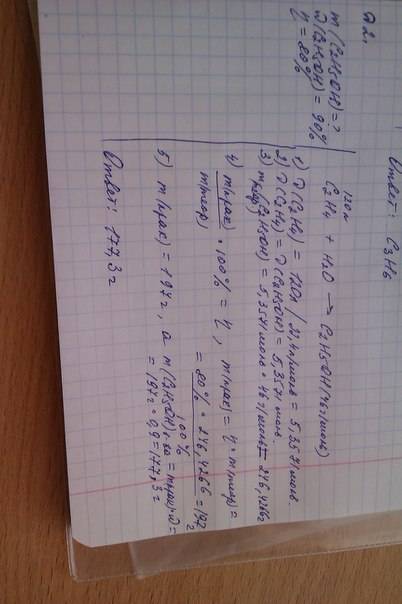 Ответ: C3H6
д2.
m(C2H5OH) = ?
ω(C2H5OH) = 90%
η = 80%
120л
C2H4 + H2O → C2H5OH (46г/моль)
1) ν(C2H4) = 120л / 22,4л/моль = 5,3571 моль.
2) ν(C2H4) = ν(C2H5OH) = 5,3571 моль.
3) mтеор(C2H5OH) = 5,3571 моль · 46г/моль = 246,4266г
4) m(прак)/m(теор) · 100% = η, m(прак) = η · m(теор)/100% =
= 80% · 246,4266 = 197г
5) m(прак) = 197г, а m(C2H5OH)р-ва = mпрак·ω =
= 197г · 0,9 = 177,3г
Ответ: 177,3г